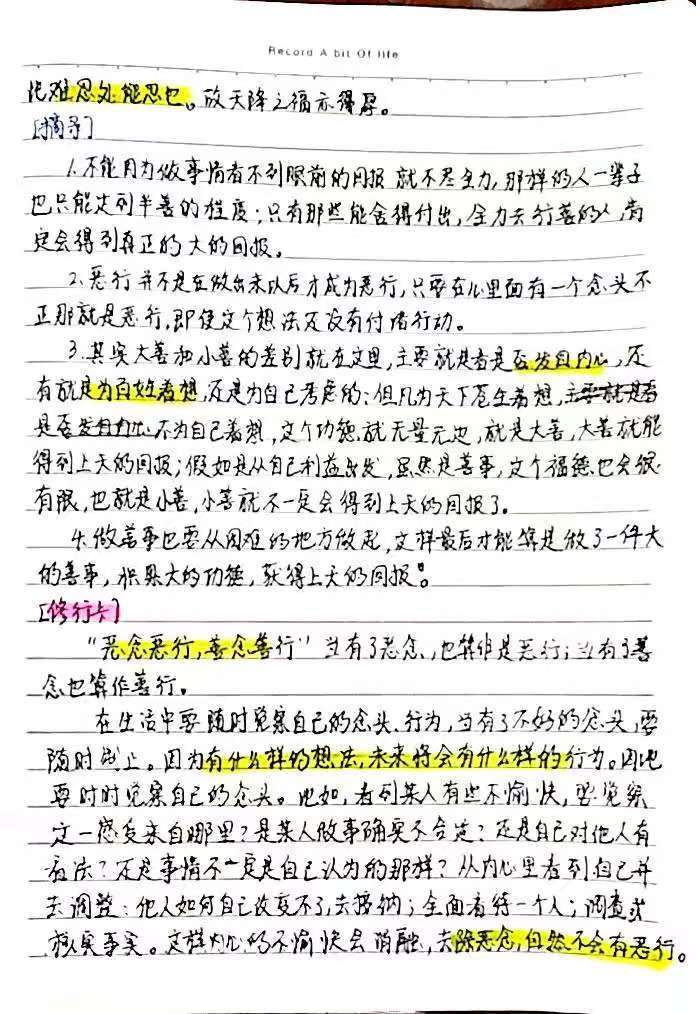 Record A bit Of life
此难忍处能忍也。故天降之福亦得厚。
[摘录]
1.不能因为做事情看不到眼前的回报就不尽全力,那样的人一辈子
也只能达到半善的程度;只有那些能舍得付出,全力去行善的人,肯
定会得到真正的大的回报。
2.恶行并不是在做出来以后才成为恶行,只要在心里面有一个念头不
正那就是恶行,即使这个想法还没有付诸行动。
3.其实大善和小善的差别就在这里,主要就是看是否发自内心,还
有就是为百姓着想,还是为自己考虑的;但凡为天下苍生着想,主要就是看
是否发自内心不为自己着想,这个功德就无量无边,就是大善,大善就能
得到上天的回报;假如是从自己利益出发,虽然是善事,这个福德也会很
有限,也就是小善,小善就不一定会得到上天的回报了。
4.做善事也要从困难的地方做起,这样最后才能算是做了一件大
的善事,积累大的功德,获得上天的回报。
[修行点]
“恶念恶行,善念善行”当有了恶念,也算作是恶行;当有了善
念也算作善行。
在生活中要随时觉察自己的念头、行为,当有了不好的念头,要
随时改上。因为有什么样的想法,未来将会有什么样的行为。因此
要时时觉察自己的念头。比如,看到某人有些不愉快,要觉察
这一感受来自哪里?是某人做事确实不合适?还是自己对他人有
看法?还是事情不一定是自己认为的那样?从内心里看到自己并
去调整:他人如何自己改变不了,去接纳;全面看待一个人;调查或
核实事实。这样内心的不愉快会消融,去除恶念,自然不会有恶行。